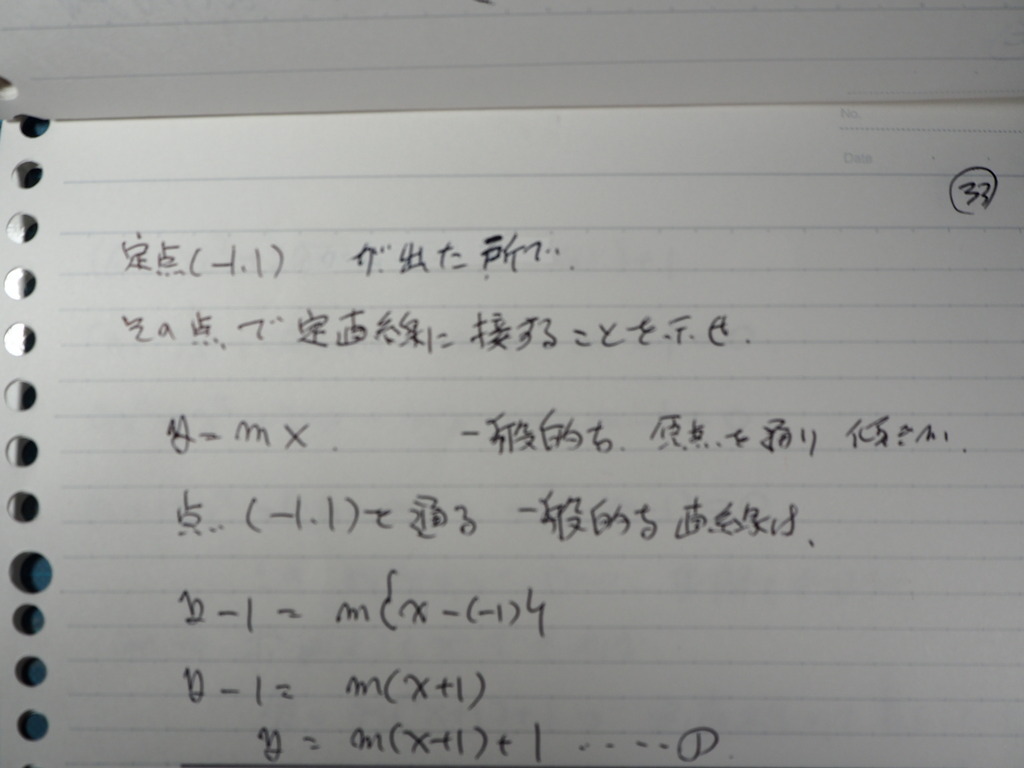 No.
Date
33
定点(-1.1) が出た所で.
その点で定直線に接することを示せ.
y = mx. 一般的な. 原点を通り 傾きm.
点 (-1.1)を通る 一般的な直線は、
y - 1 = m{x - (-1)}
y - 1 = m(x+1)
y = m(x+1) + 1 ..... ①